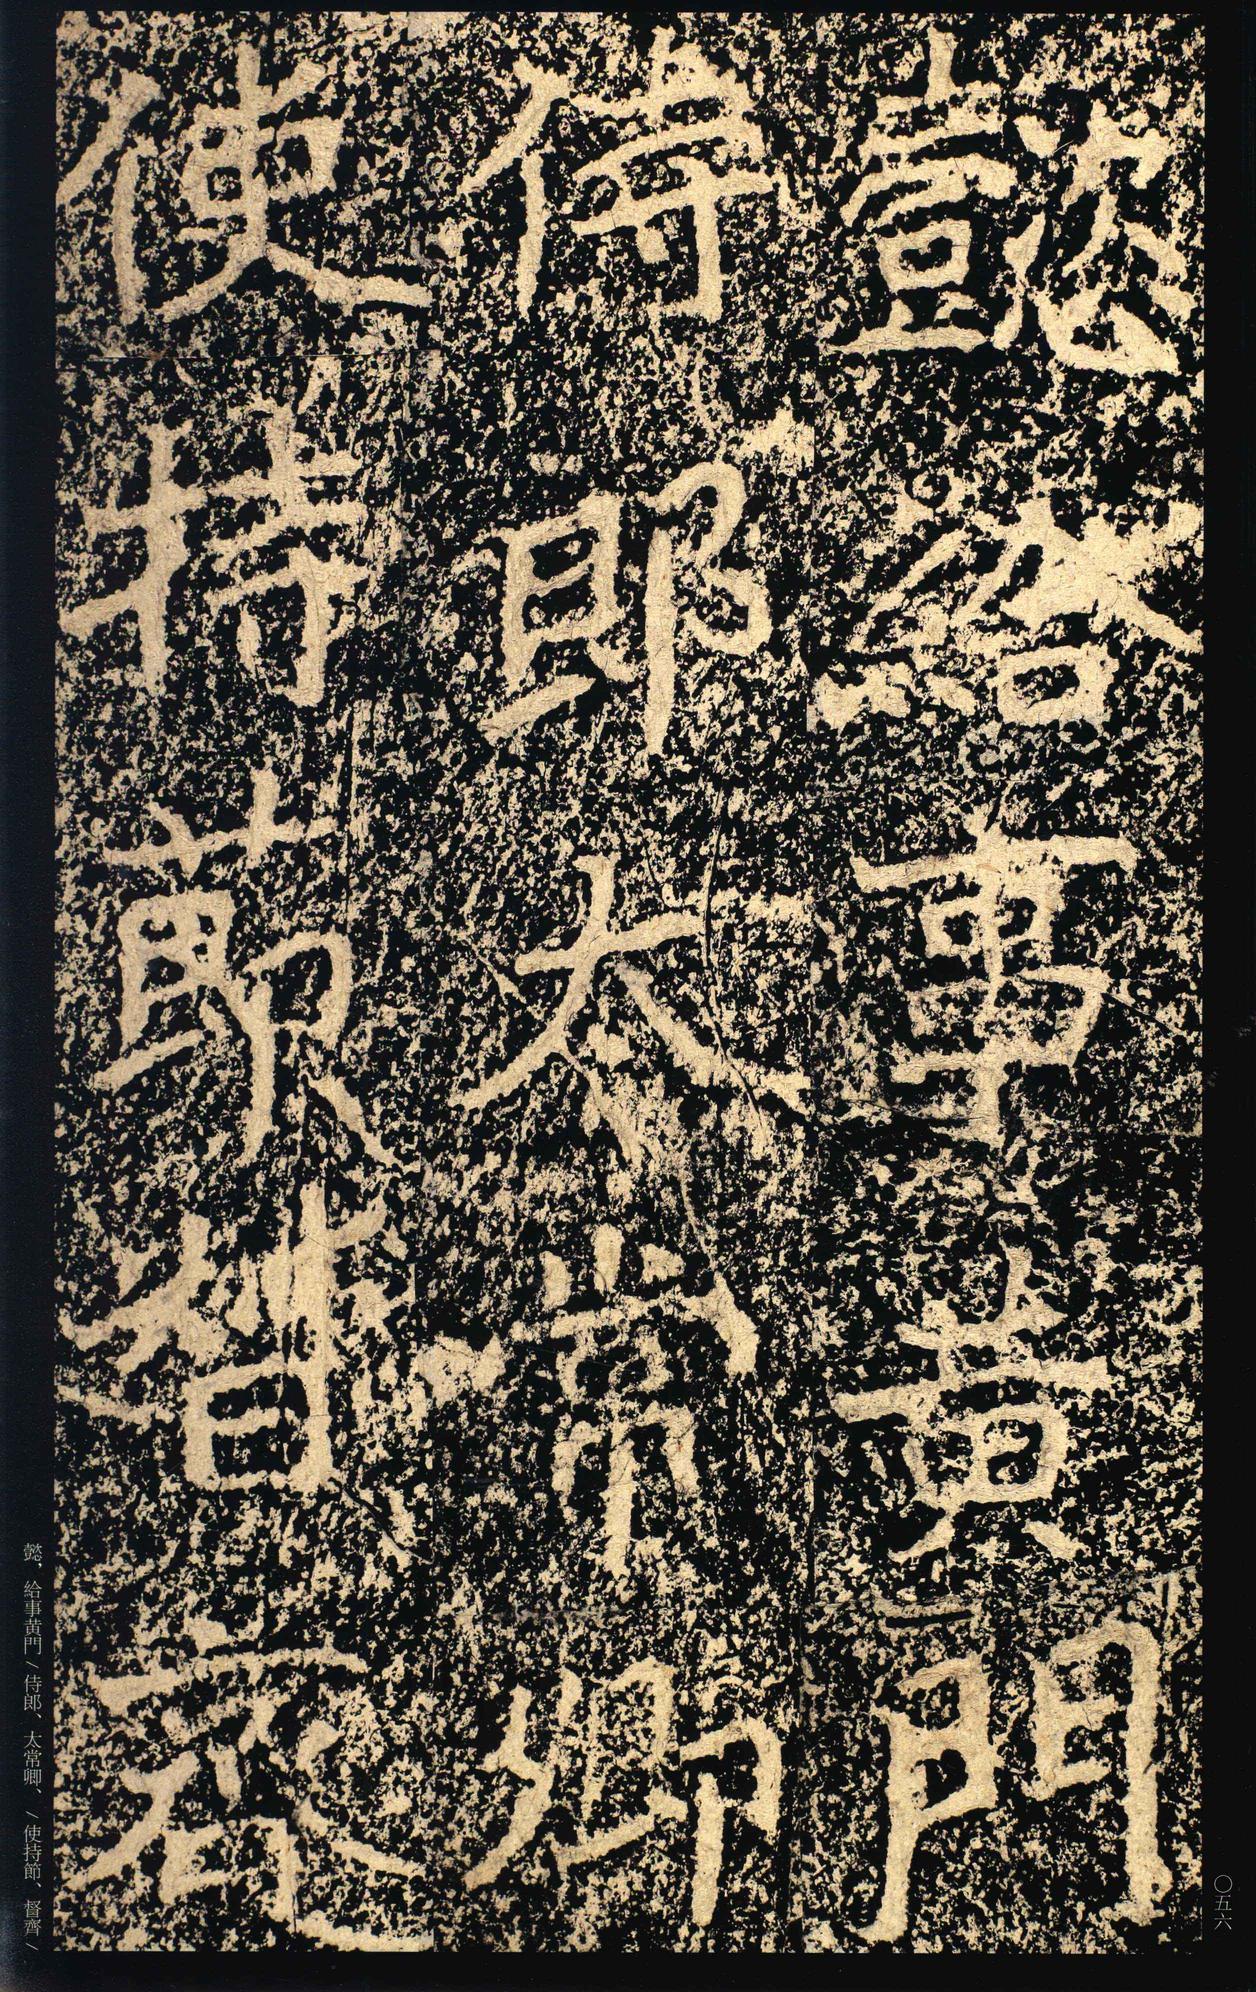 懿給事黃門
侍郎太常卿
使持節督齊
懿，給事黃門／侍郎、太常卿、／使持節、督齊／
〇五六